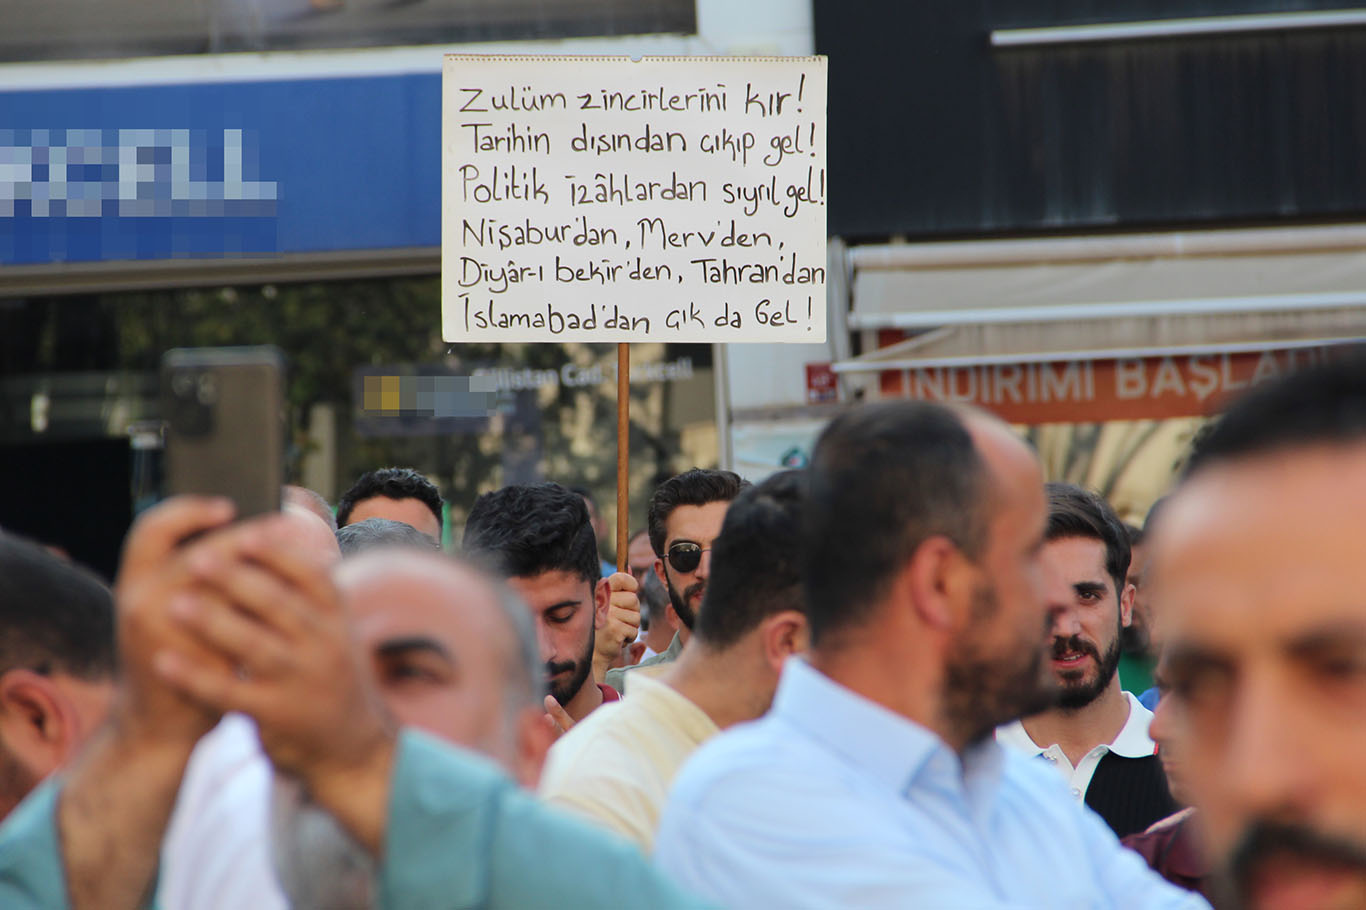 Zulüm zincirlerini kır!
Tarihin dışından çıkıp gel!
Politik izâhlardan sıyrıl gel!
Nişabur'dan, Merv'den,
Diyâr-ı bekir'den, Tahran'dan
İslamabad'dan çık da Gel!
İNDİRİMİ BAŞLA